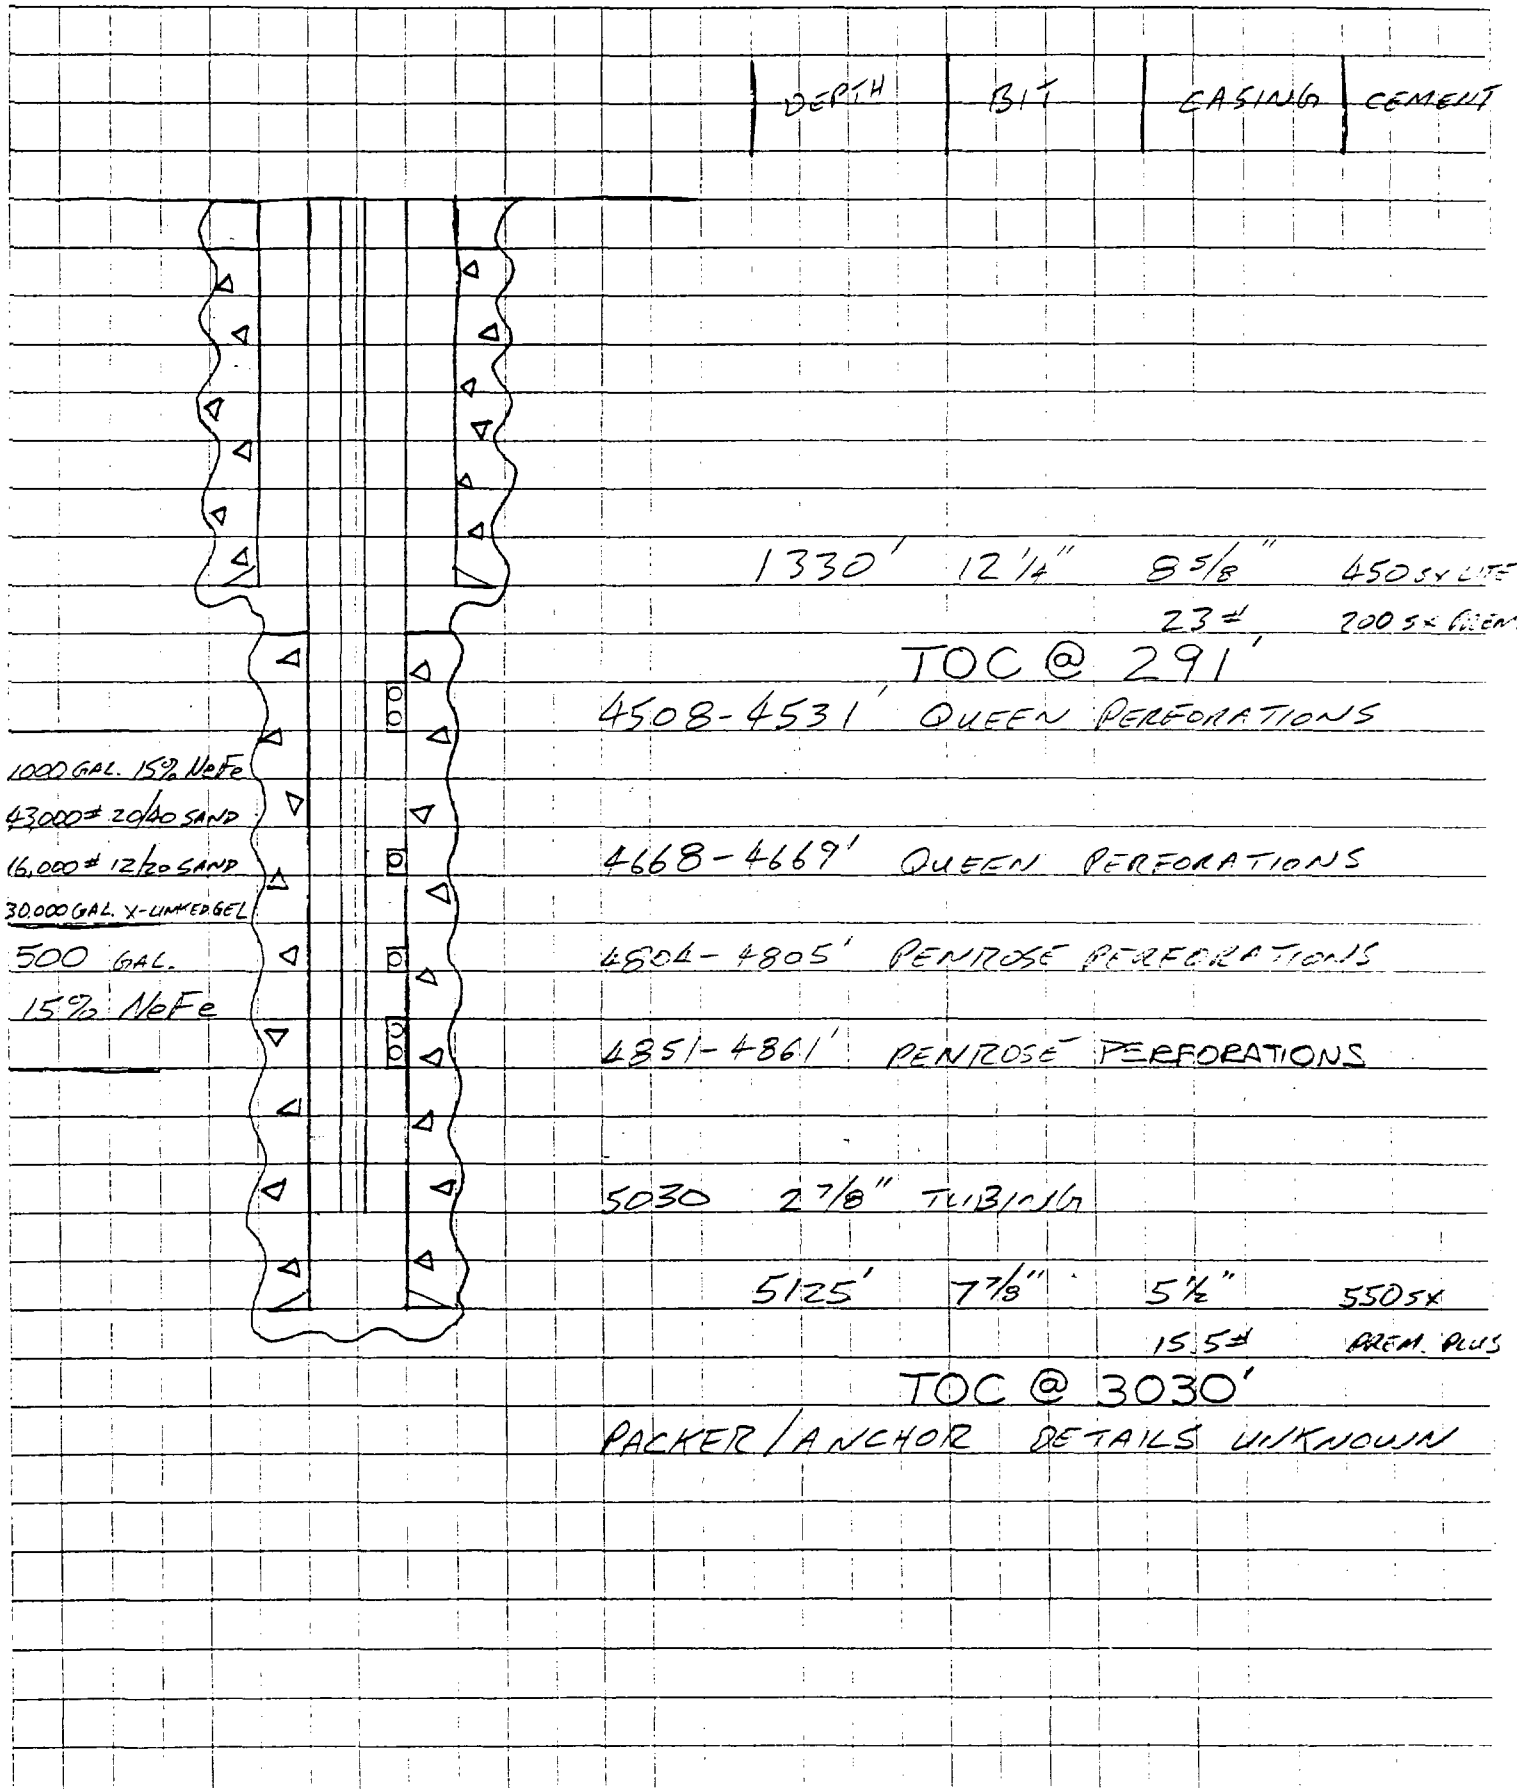 DEPTH BIT CASING CEMENT
1330' 12 1/4" 8 5/8" 450 SX LITE
23# 200 SX PREM.
TOC @ 291'
4508-4531' QUEEN PERFORATIONS
1000 GAL. 15% NeFe
43,000# 20/40 SAND
16,000# 12/20 SAND
30,000 GAL. X-LINKED GEL
4668-4669' QUEEN PERFORATIONS
500 GAL.
15% NeFe
4804-4805' PENROSE PERFORATIONS
4851-4861' PENROSE PERFORATIONS
5030 2 7/8" TUBING
5125' 7 7/8" 5 1/2" 550 SX
15.5# PREM. PLUS
TOC @ 3030'
PACKER/ANCHOR DETAILS UNKNOWN